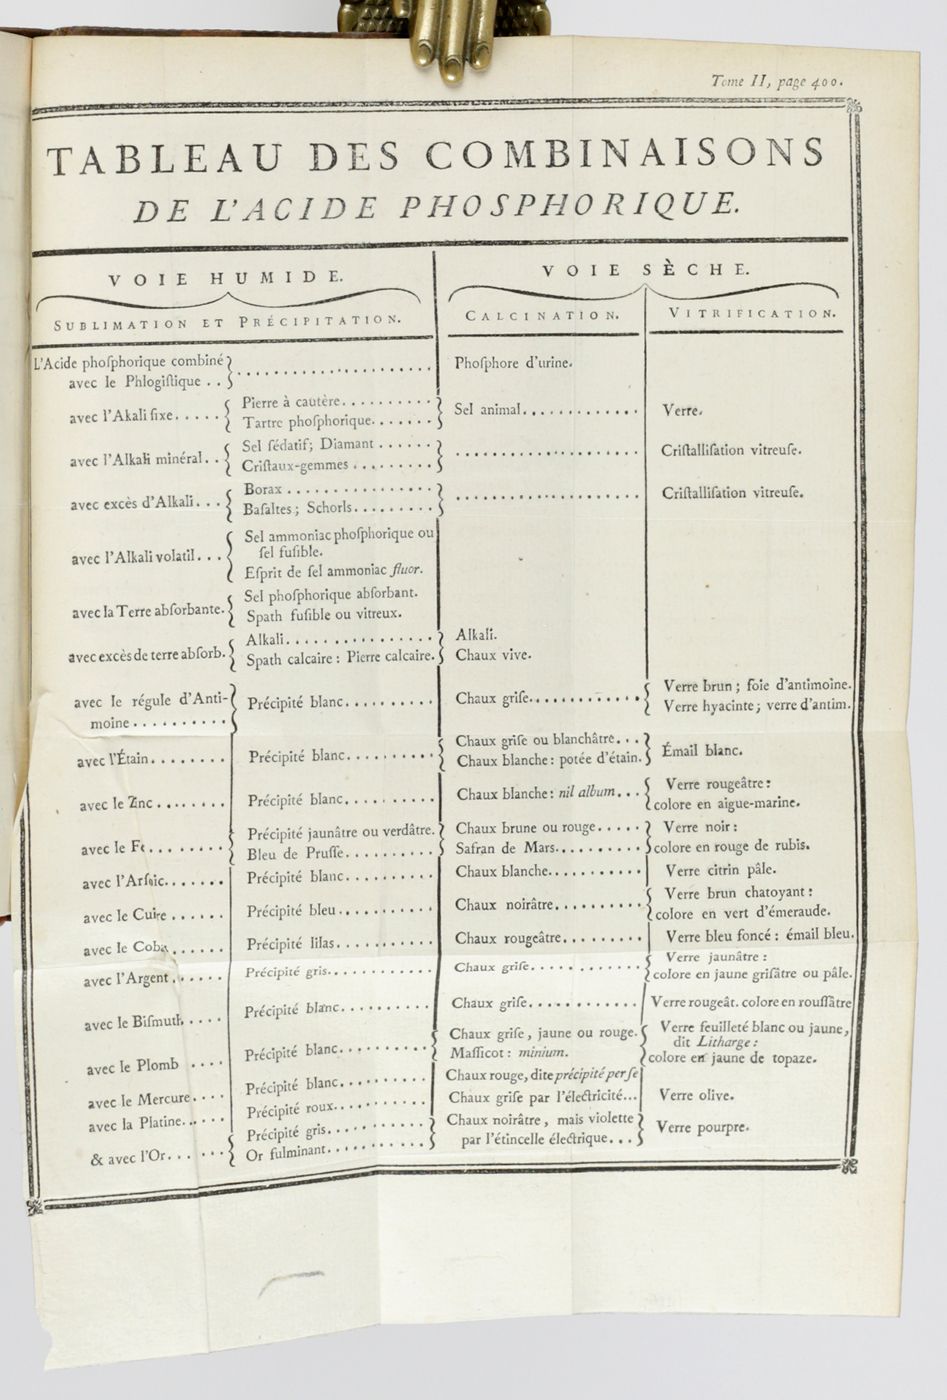 Tome II, page 400.
TABLEAU DES COMBINAISONS
DE L'ACIDE PHOSPHORIQUE.
VOIE HUMIDE. VOIE SÈCHE.
SUBLIMATION ET PRÉCIPITATION. CALCINATION. VITRIFICATION.
L'Acide phoſphorique combiné
avec le Phlogiſtique . . } . . . . . . . . . . Phoſphore d'urine.
avec l'Akali fixe. . . . . { Pierre à cautère. . . . . . . . . .
Tartre phoſphorique. . . . . . . } Sel animal. . . . . . . . . . . . Verre.
avec l'Alkali minéral. . { Sel ſédatif; Diamant . . . . . .
Criſtaux-gemmes . . . . . . . . . } . . . . . . . . . . . . Criſtalliſation vitreuſe.
avec excès d'Alkali. . . { Borax . . . . . . . . . . . . . . .
Baſaltes; Schorls. . . . . . . . . } . . . . . . . . . . . . Criſtalliſation vitreuſe.
avec l'Alkali volatil. . . { Sel ammoniac phoſphorique ou
ſel fuſible.
Eſprit de ſel ammoniac fluor.
avec la Terre abſorbante. { Sel phoſphorique abſorbant.
Spath fuſible ou vitreux.
avec excès de terre abſorb. { Alkali. . . . . . . . . . . . . . . . } Alkali.
Spath calcaire: Pierre calcaire. } Chaux vive.
avec le régule d'Anti-
moine . . . . . . . . . . } Précipité blanc. . . . . . . . . . Chaux griſe. . . . . . . . . . . . { Verre brun; foie d'antimoine.
Verre hyacinte; verre d'antim.
avec l'Étain. . . . . . . . Précipité blanc. . . . . . . . . . { Chaux griſe ou blanchâtre. . .
Chaux blanche: potée d'étain. } Émail blanc.
avec le Zinc . . . . . . . . Précipité blanc. . . . . . . . . . Chaux blanche: nil album. . . { Verre rougeâtre:
colore en aigue-marine.
avec le Fe . . . . . . . . { Précipité jaunâtre ou verdâtre. } Chaux brune ou rouge. . . . . } Verre noir:
Bleu de Pruſſe. . . . . . . . . . } Safran de Mars. . . . . . . . . . } colore en rouge de rubis.
avec l'Arſnic. . . . . . . Précipité blanc. . . . . . . . . . Chaux blanche. . . . . . . . . . . Verre citrin pâle.
avec le Cuire . . . . . . Précipité bleu . . . . . . . . . . Chaux noirâtre. . . . . . . . . . { Verre brun chatoyant:
colore en vert d'émeraude.
avec le Coba . . . . . . Précipité lilas. . . . . . . . . . Chaux rougeâtre. . . . . . . . . Verre bleu foncé: émail bleu.
avec l'Argent . . . . . . Précipité gris. . . . . . . . . . . Chaux griſe. . . . . . . . . . . . { Verre jaunâtre:
colore en jaune griſâtre ou pâle.
avec le Biſmuth . . . . Précipité blanc. . . . . . . . . . Chaux griſe. . . . . . . . . . . . Verre rougeât. colore en rouſſâtre
avec le Plomb . . . . Précipité blanc. . . . . . . . . . { Chaux griſe, jaune ou rouge.
Maſſicot: minium. { Verre feuilleté blanc ou jaune,
dit Litharge:
colore en jaune de topaze.
avec le Mercure. . . . Précipité blanc. . . . . . . . . . Chaux rouge, dite précipité per ſe
avec la Platine. . . . . Précipité roux. . . . . . . . . . . Chaux griſe par l'électricité... Verre olive.
& avec l'Or. . . . . . { Précipité gris. . . . . . . . . . .
Or fulminant. . . . . . . . . . . } Chaux noirâtre, mais violette
par l'étincelle électrique. . . } Verre pourpre.